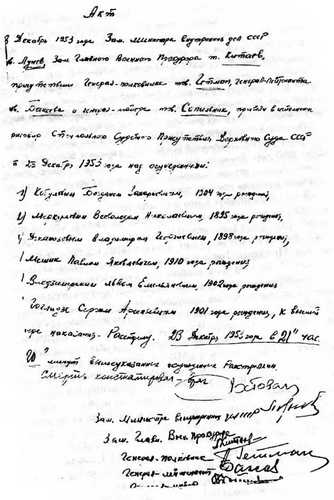 Акт
Декабря 1953 года Зам. министра внутренних дел СССР
тов. Лунев, Зам. Главного Военного Прокурора т. Китаев,
в присутствии генерал-полковника тов. Гетман, генерал-лейтенанта
тов. Бакеева и генерал-майора тов. Сопильник, привели в исполнение
Специального Судебного Присутствия Верховного Суда СССР
23 Декабря 1953 года над осужденными:
1) Кобуловым Богданом Захарьевичем, 1904 года рождения,
2) Меркуловым Всеволодом Николаевичем, 1895 года рождения,
Деканозовым Владимиром Георгиевичем, 1898 года рождения,
Мешик Павлом Яковлевичем, 1910 года рождения
Влодзимирским Львом Емельяновичем, 1902 года рождения
Гоглидзе Сергеем Арсентьевичем 1901 года рождения, к высшей
мере наказания - Расстрелу. 23 Декабря 1953 года в 21 час.
минут вышеуказанные осужденные расстреляны.
Смерть констатировал - врач
Зам. Министра Внутренних дел
Зам. Главн. Воен Прокурора Китаев
Генерал-полковник Гетман
Генерал-лейтенант Бакеев